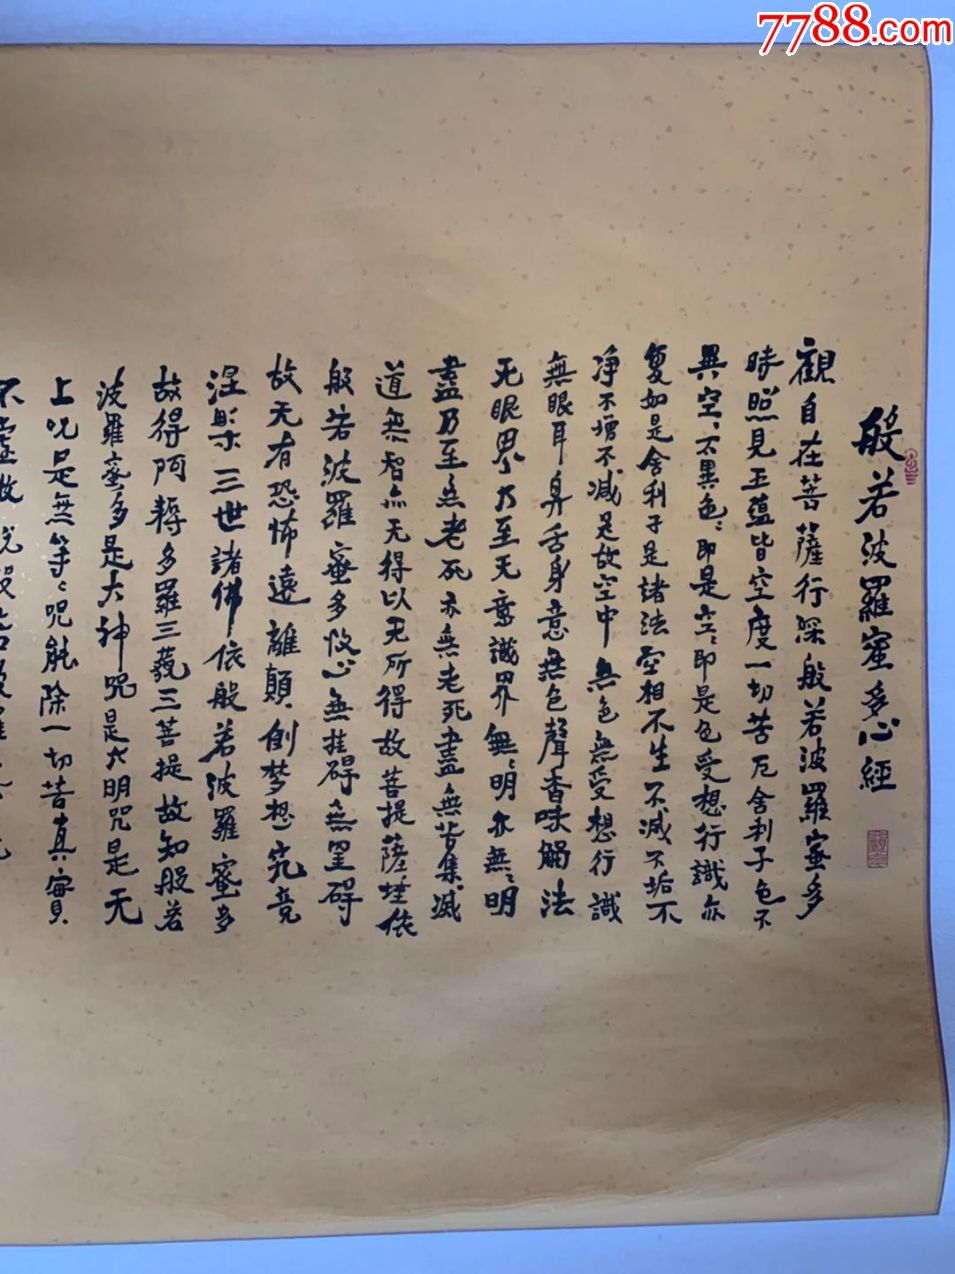 7788.com
般若波羅蜜多心經
觀自在菩薩行深般若波羅蜜多
時照見五蘊皆空度一切苦厄舍利子色不
異空、不異色、即是空、即是色受想行識亦
復如是舍利子是諸法空相不生不减不垢不
净不增不减是故空中無色無受想行識
無眼耳鼻舌身意無色聲香味觸法
无眼界乃至无意識界無、明亦無、明
盡乃至無老死亦無老死盡無苦集滅
道無智亦无得以无所得故菩提薩埵依
般若波羅蜜多故心無挂碍無罣碍
故无有恐怖遠離顛倒梦想究竟
涅槃三世諸佛依般若波羅蜜多
故得阿耨多羅三藐三菩提故知般若
波羅蜜多是大神咒是大明咒是无
上咒是無等、咒能除一切苦真實
不虛故說般若波羅